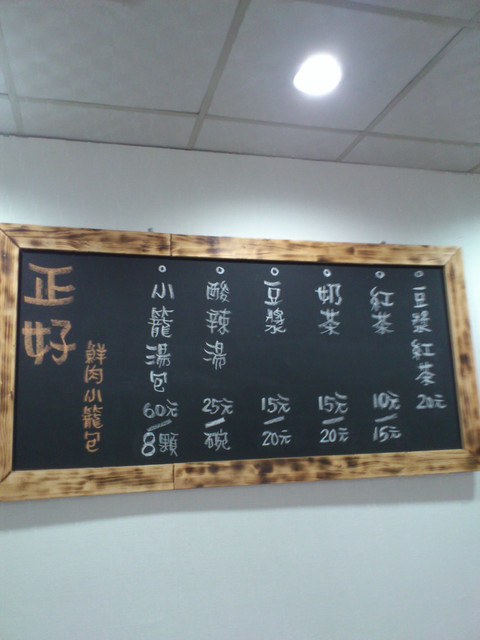 正好
鮮肉小籠包
小籠湯包 60元/8顆
酸辣湯 25元/碗
豆漿 15元/20元
奶茶 15元/20元
紅茶 10元/15元
豆漿紅茶 20元